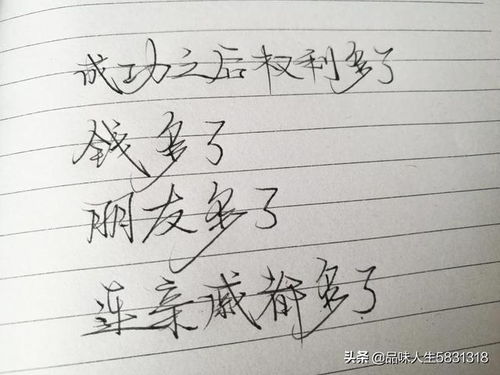 成功之后权利多了
钱多了
朋友多了
连亲戚都多了
头条 @品味人生5831318